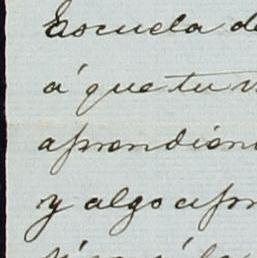 Escuela de
á que tu
aprendien
y algo apr